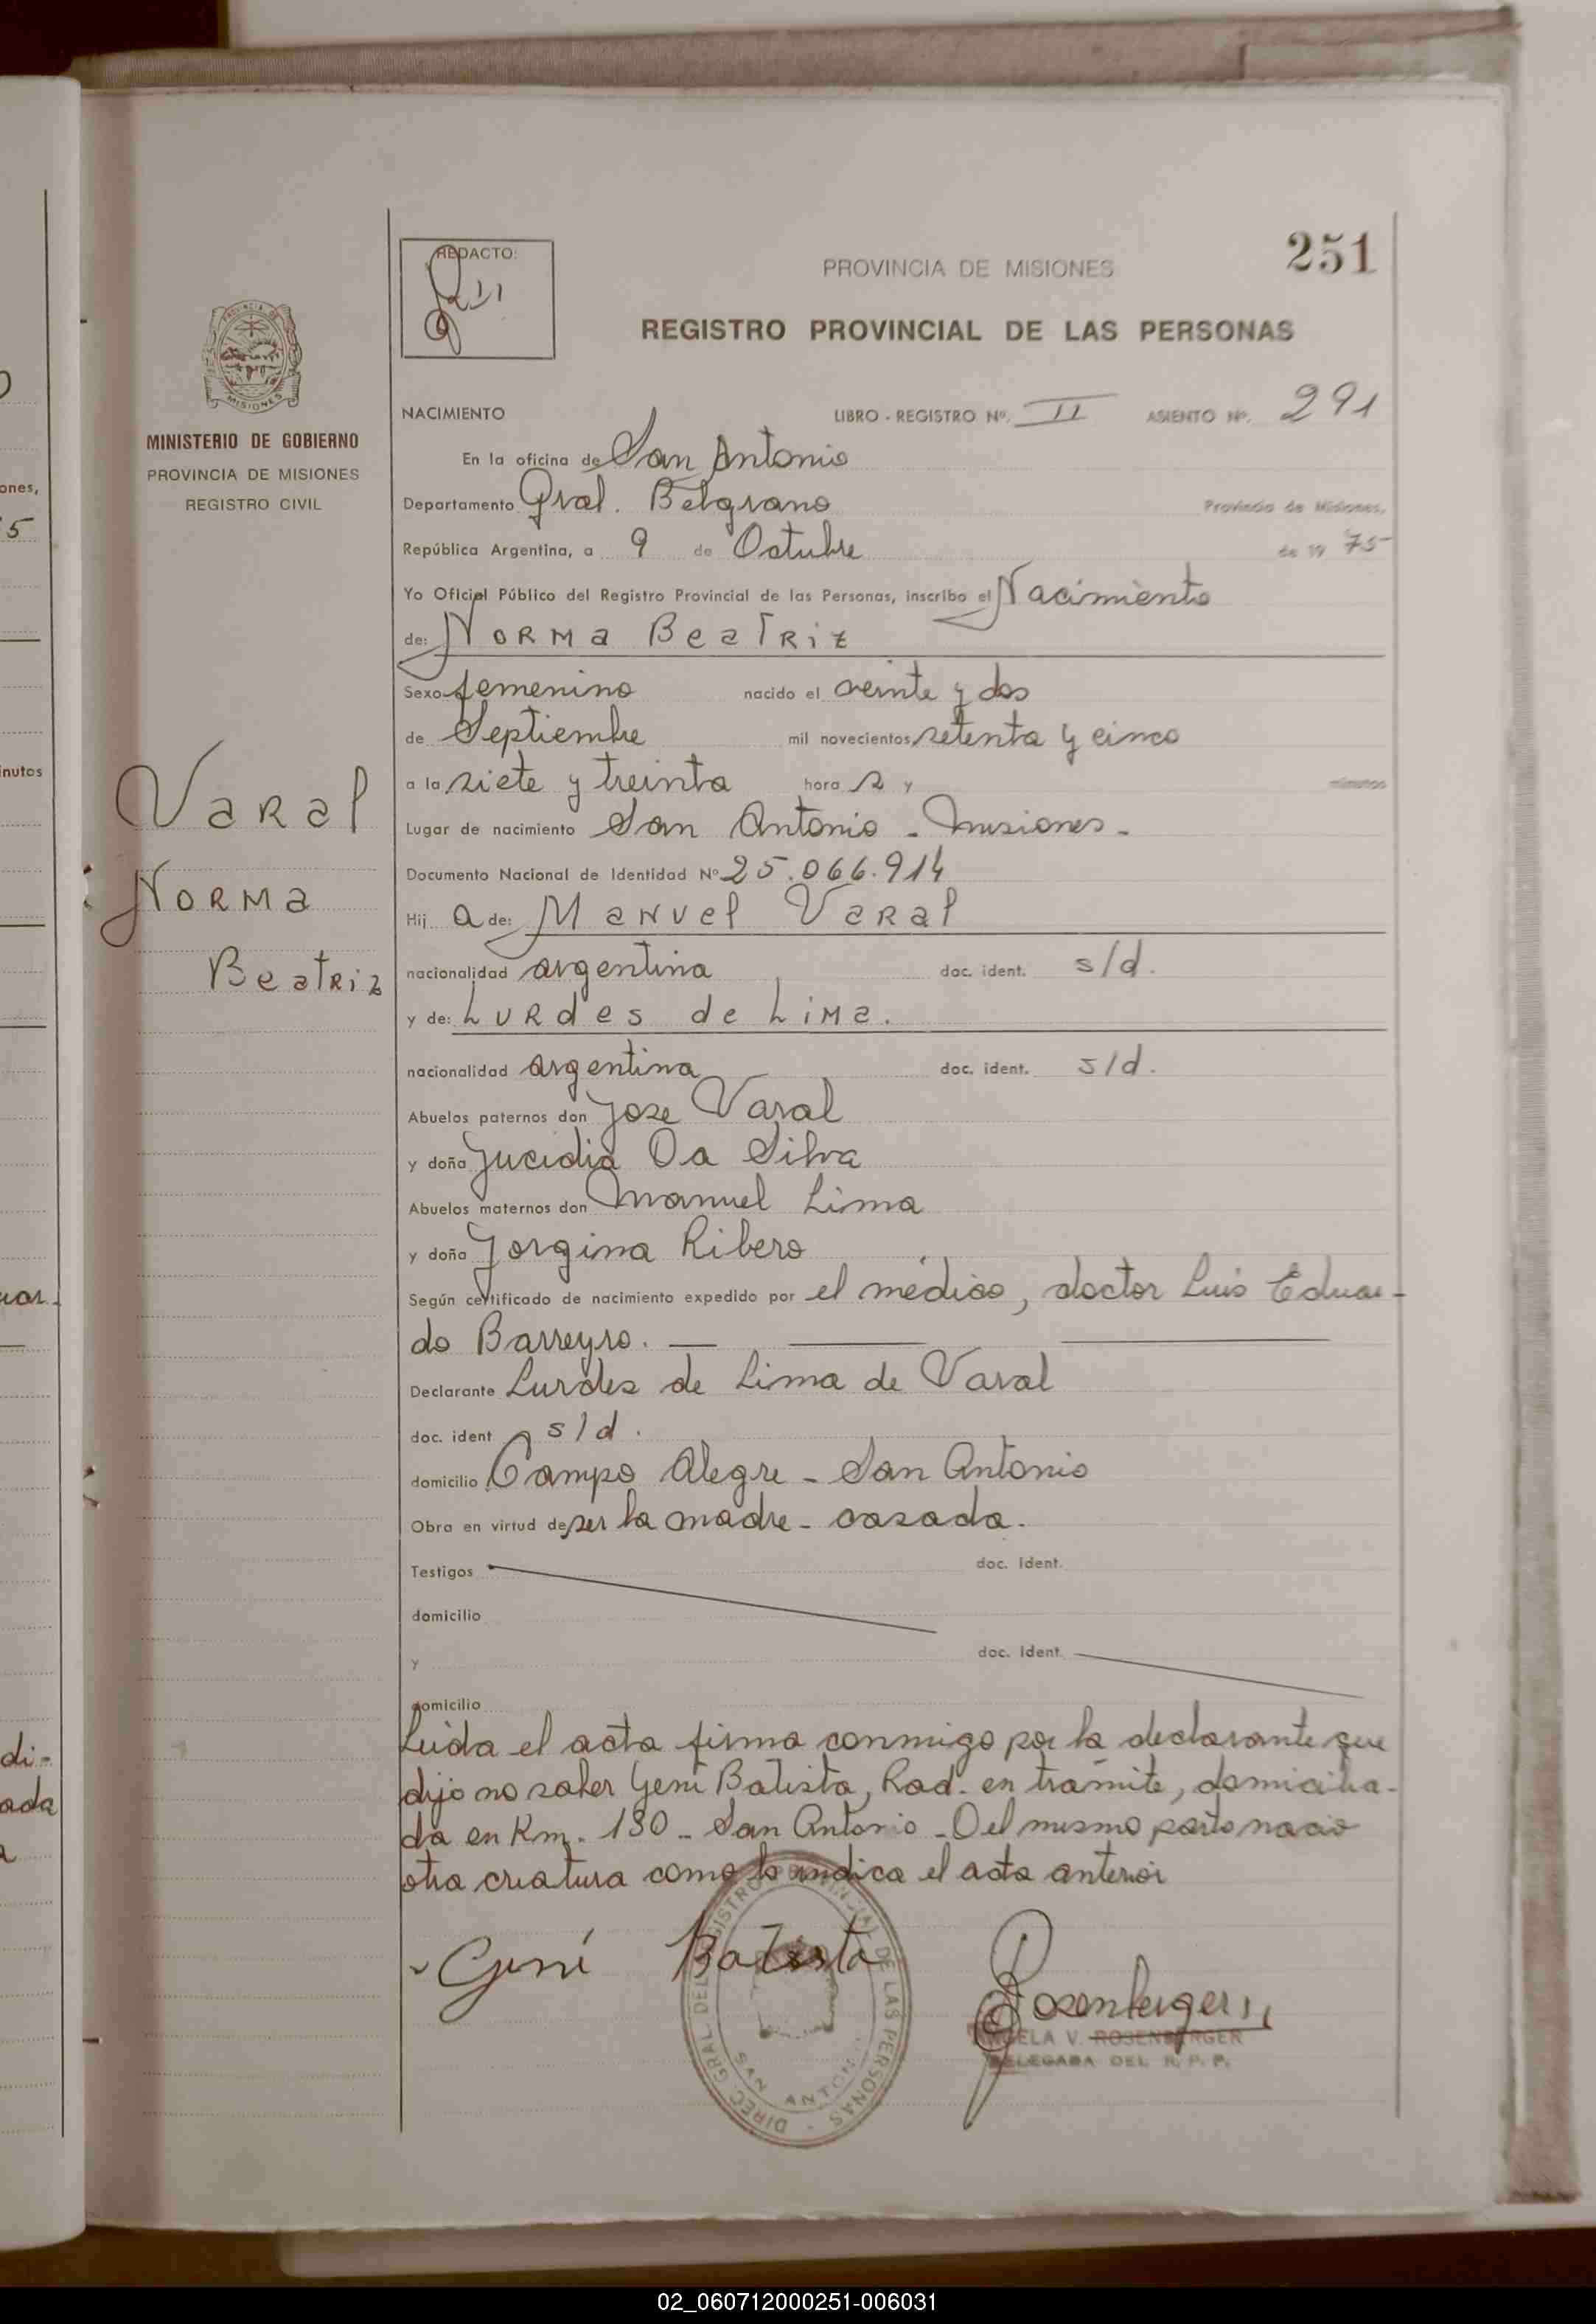 251
REDACTO:
PROVINCIA DE MISIONES
REGISTRO PROVINCIAL DE LAS PERSONAS
PROVINCIA DE
MISIONES
MINISTERIO DE GOBIERNO
PROVINCIA DE MISIONES
REGISTRO CIVIL
NACIMIENTO LIBRO - REGISTRO Nº. II ASIENTO Nº. 291
En la oficina de San Antonio
Departamento Gral. Belgrano Provincia de Misiones,
República Argentina, a 9 de Octubre de 19 75
Yo Oficial Público del Registro Provincial de las Personas, inscribo el Nacimiento
de: Norma Beatriz
Sexo femenino nacido el veinte y dos
de Septiembre mil novecientos setenta y cinco
a la siete y treinta hora s y minutos
Lugar de nacimiento San Antonio - Misiones -
Documento Nacional de Identidad Nº 25.066.914
Hij a de: Manuel Varal
nacionalidad argentina doc. ident. s/d.
y de: Lurdes de Lima.
nacionalidad argentina doc. ident. s/d.
Abuelos paternos don Jose Varal
y doña Jucidia Da Silva
Abuelos maternos don Manuel Lima
y doña Jorgina Ribero
Según certificado de nacimiento expedido por el médico, doctor Luis Eduar-
do Barreyro.
Declarante Lurdes de Lima de Varal
doc. ident s/d.
domicilio Campo Alegre - San Antonio
Obra en virtud de ser la madre - casada.
Testigos doc. ident.
domicilio
y doc. ident.
domicilio
Leida el acta firma conmigo por la declarante que
dijo no saber Geni Batista, Rad. en trámite, domicilia-
da en Km. 130 - San Antonio - Del mismo parto nació
otra criatura como lo indica el acta anterior
Geni Batista
Rosenberger
ANGELA V. ROSENBERGER
DELEGADA DEL R. P. P.
DIREC. GRAL. DEL REGISTRO PROVINCIAL DE LAS PERSONAS
SAN ANTONIO
Varal
Norma
Beatriz
ones,
5
inutos
di-
ada
02_060712000251-006031